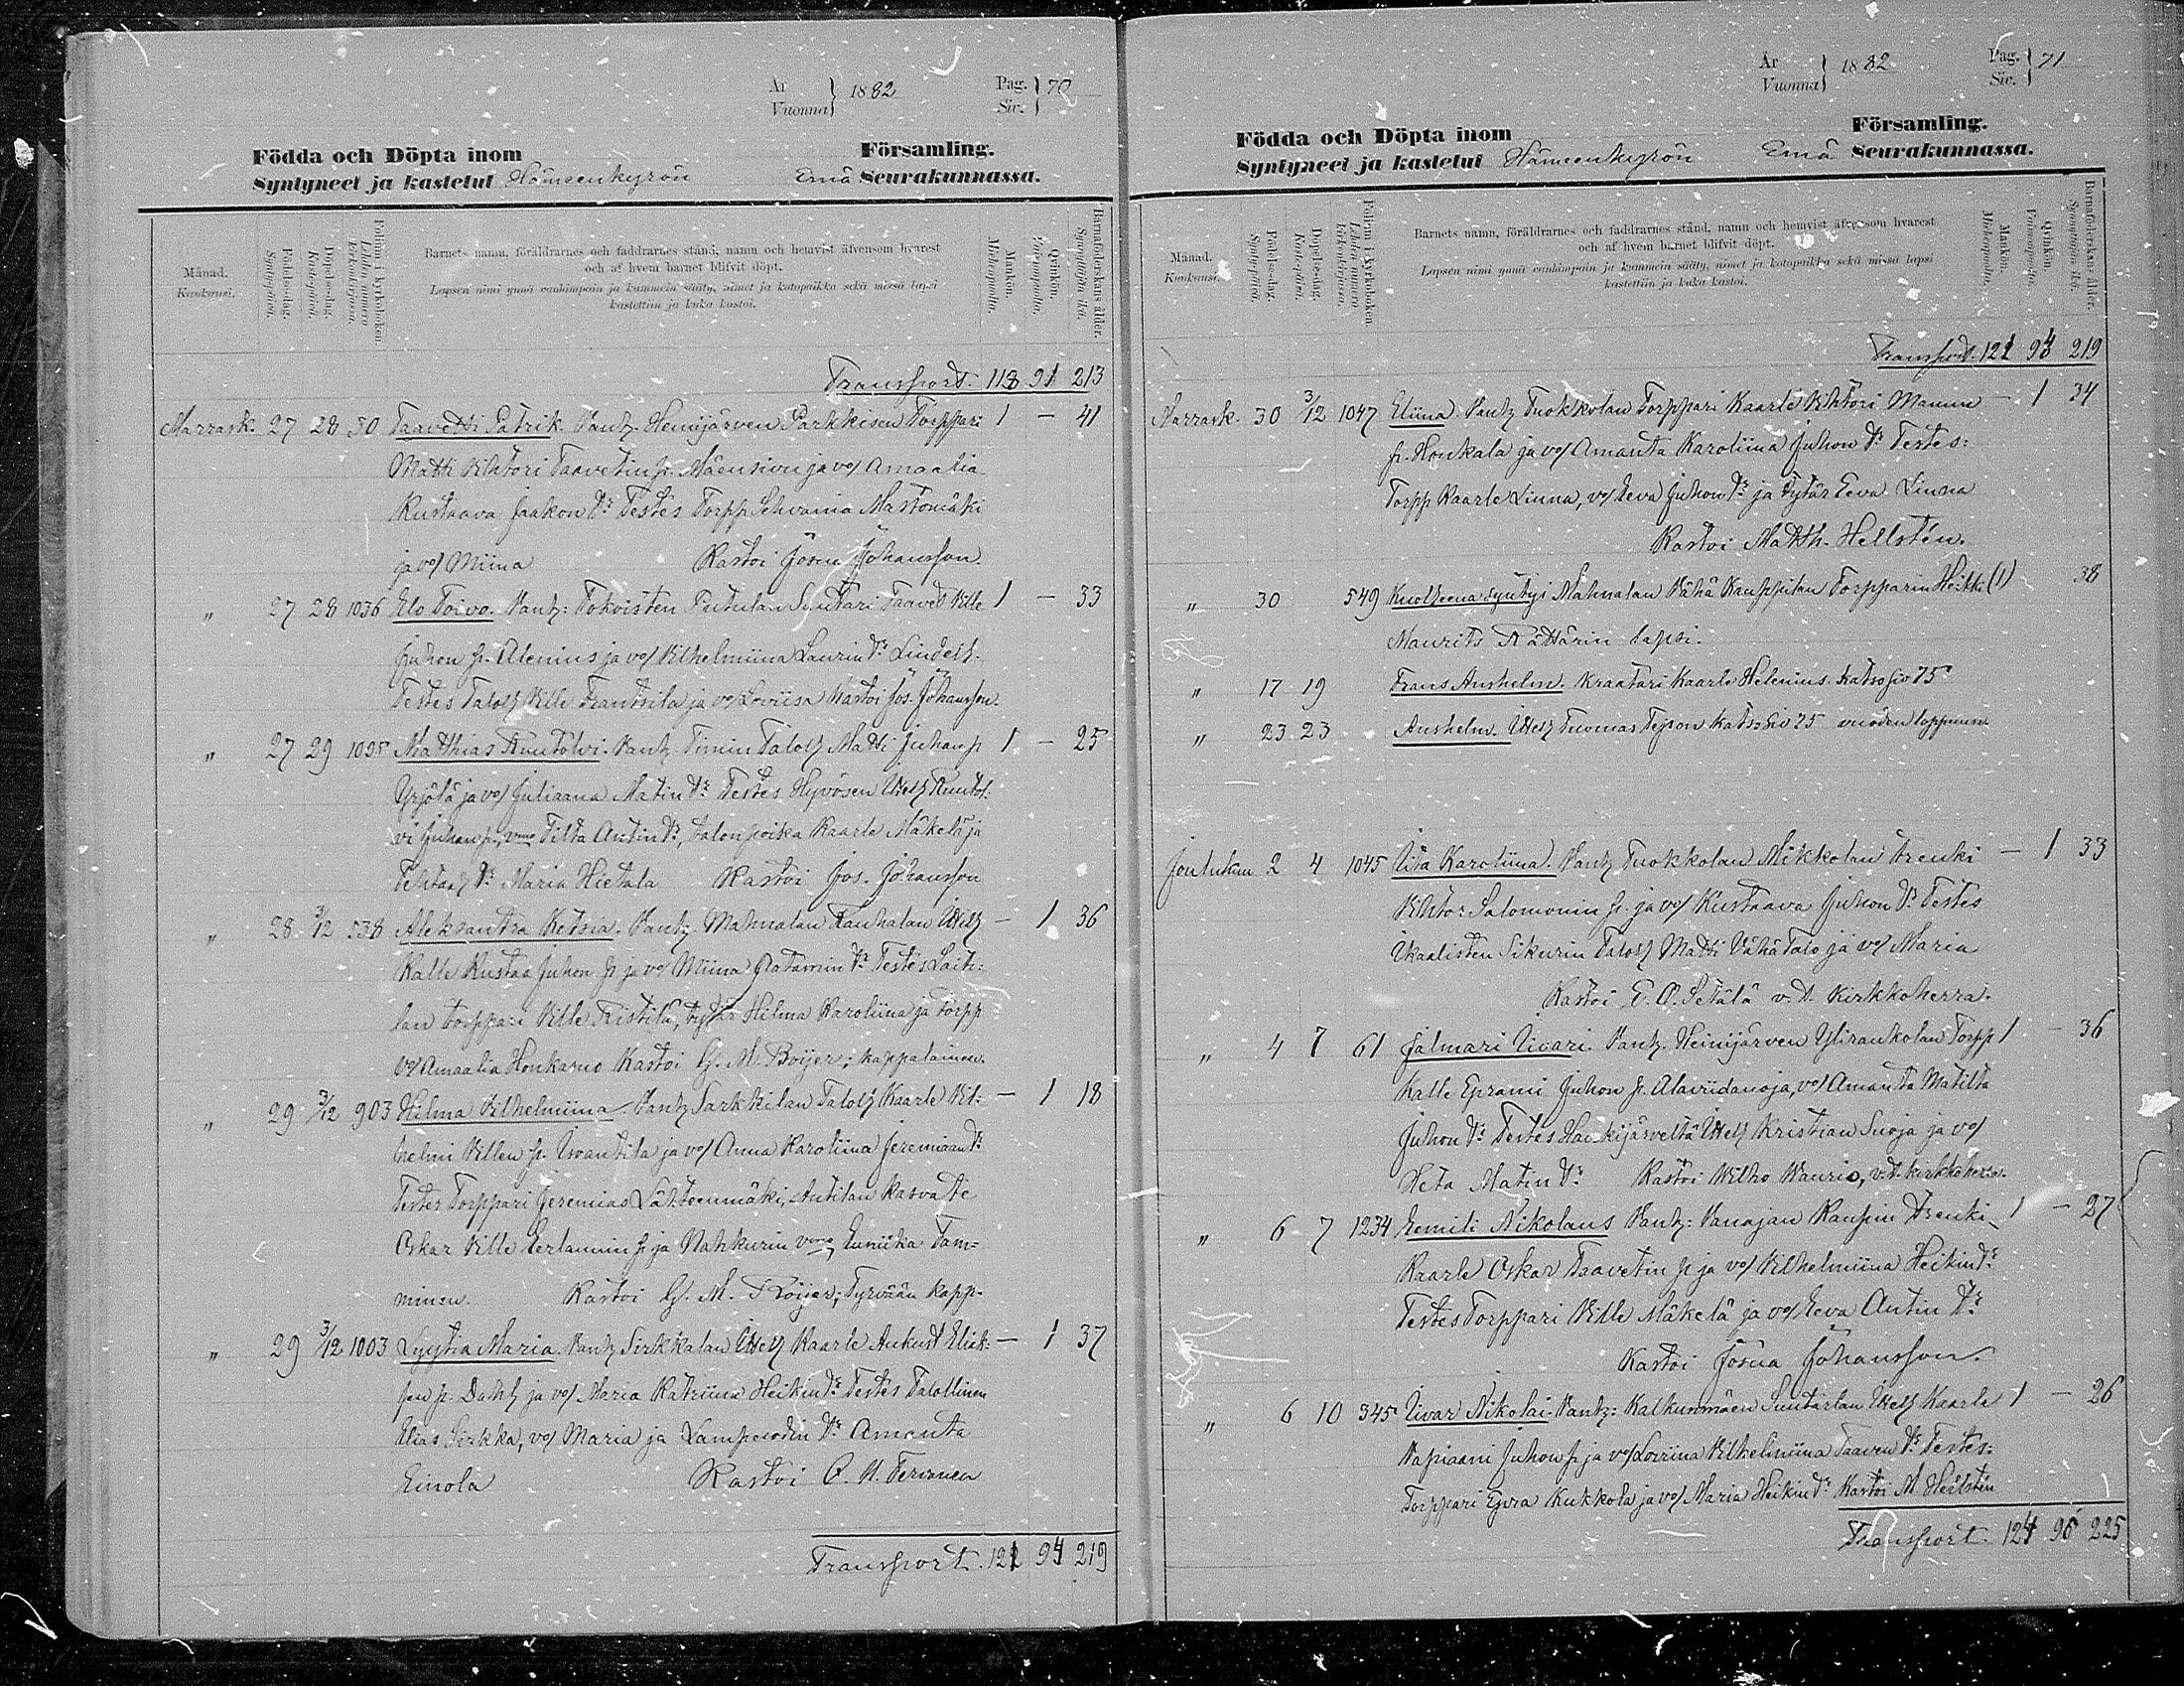 År
Vuonna } 1882
Pag.
Siv. } 70
Födda och Döpta inom Församling.
Syntyneet ja kastetut Hämeenkyrön Emä Seurakunnassa.
Månad.
Kuukausi.
Födelse-dag.
Syntypäivä.
Dopelse-dag.
Kastepäivä.
Folium i kyrkoboken
Lehden numero kirkonkirjassa.
Barnets namn, föräldrarnes och faddrarnes stånd, namn och hemvist äfvensom hvarest
och af hvem barnet blifvit döpt.
Lapsen nimi ynnä vanhimpain ja kummein sääty, nimet ja kotopaikka sekä missä lapsi
kastettiin ja kuka kastoi.
Mankön.
Miehenpuolta.
Qvinkön.
Vaimonpuolta.
Barnaföderskans ålder.
Synnyttäjän ikä.
Transport. 118 91 213
Marrask. 27 28 50 Taavetti Patrik. Vanh. Heinijärven Parkkisen Torppari 1 — 41
Matti Vihtori Taavetin p. Mäensivu ja vo/ Amaalia
Kustaava Jaakon tr Testes Torpp Mastomäki
ja vo/ Miina Kastoi Josua Johansson.
" 27 28 1036 Elo Toivo. Vanh: Tokoisten Suutari Taavet Ville 1 — 33
Juhon p. Alenius ja vo/ Vilhelmiina Laurin tr
Testes Ville Frantsila ja vo/ Loviisa Kastoi Jos. Johansson.
" 27 29 1095 Matthias Ruutolvi. Vanh. Timin Matti Juhan p 1 — 25
Yrjölä ja vo/ Juliaana Matin tr Testes Hyvösen
vi Juhan p., Tilta Antin tr, talonpoika Kaarle Mäkelä ja
tr Maria Hietala Kastoi Jos. Johansson
" 28 3/12 538 Aleksantra Ketsia. Vanh. Mahnalan Rauhalan — 1 36
Kalle Kustaa Juhon p ja vo Miina Aatamin tr Testes Lait:
lan torppari Ville Ristila, tytär Hilma Karoliina ja torpp
vo/ Amaalia Honkasuo Kastoi G. M. Boijer; kappalainen.
" 29 3/12 903 Hilma Vilhelmiina. Vanh. Sarkkilan Kaarle Vil: — 1 18
helmi Villen p. ja vo/ Anna Karoliina Jeremiaan tr
Testes Torppari Jeremias Antilan kasvate
Oskar Ville Eerlannin p ja Nahkurin Euniika Tam=
minen. Kastoi G. M. Boijer; Tyrvään kapp.
" 29 3/12 1003 Lyytia Maria. Vanh. Sirkkalan Kaarle Aukust — 1 37
p. ja vo/ Maria Katriina Heikin tr Testes Talollinen
Elias Sirkka, vo/ Maria ja tr Amanta
Einola Kastoi
Transport. 122 94 219
År
Vuonna } 1882
Pag.
Siv. } 71
Födda och Döpta inom Församling.
Syntyneet ja kastetut Hämeenkyrön Emä Seurakunnassa.
Månad.
Kuukausi.
Födelse-dag.
Syntypäivä.
Dopelse-dag.
Kastepäivä.
Folium i kyrkoboken
Lehden numero kirkonkirjassa.
Barnets namn, föräldrarnes och faddrarnes stånd, namn och hemvist äfvensom hvarest
och af hvem barnet blifvit döpt.
Lapsen nimi ynnä vanhimpain ja kummein sääty, nimet ja kotopaikka sekä missä lapsi
kastettiin ja kuka kastoi.
Mankön.
Miehenpuolta.
Qvinkön.
Vaimonpuolta.
Barnaföderskans ålder.
Synnyttäjän ikä.
Transport. 121 94 219
Marrask. 30 3/12 1047 Eliina. Vanh. Tuokkolan Torppari Kaarle Vihtori — 1 34
p. Honkala ja vo/ Amanta Karoliina Juhon tr Testes:
Torpp Kaarle Linna, vo/ Eeva Juhon tr ja tytär Eeva Linna
Kastoi Matth. Hellstén.
" 30 549 Kuolleena syntyi Mahnalan Vähä Kauppilan Torpparin Heikki (1) 38
Maurits Rättärin lapsi.
" 17 19 Frans Anshelm. Kraatari Kaarle Helenius. Katso siv 75
" 23 23 Anshelm. Tuomas Katso siv 75 vuoden loppuun.
Joulukuu 2 4 1045 Iita Karoliina. Vanh. Tuokkolan Mikkolan trenki — 1 33
Vihtor Salomonin p. ja vo/ Kustaava Juhon tr Testes
Ikaalisten Sikurin Matti Vähä Talo ja vo/ Maria
Kastoi E. O. Setälä v.t. kirkkoherra.
" 4 7 61 Jalmari Iivari. Vanh. Heinijärven Ylirankolan Torpp 1 — 36
Kalle Juhon p. Alaviidanoja, vo/ Amanta Matilta
Juhon tr Testes Haukijärveltä Kristian Suoja ja vo/
Heta Matin tr Kastoi Wilho Waurio, v.t. kirkkoherra.
" 6 7 1234 Eemili Nikolaus Vanh: Vanajan Kaupin trenki 1 — 27
Kaarle Oskar Taavetin p ja vo/ Vilhelmiina Heikin tr
Testes Torppari Ville Mäkelä ja vo/ Eeva Antin tr
Kastoi Josua Johansson.
" 6 10 345 Iivar Nikolai. Vanh: Kalkunmäen Suutarlan Kaarle 1 — 26
Juhon p ja vo/ Loviina Vilhelmiina Taaven tr Testes:
Torppari Kukkola ja vo/ Maria Heikin tr Kastoi M. Hellstén
Transport. 124 96 225